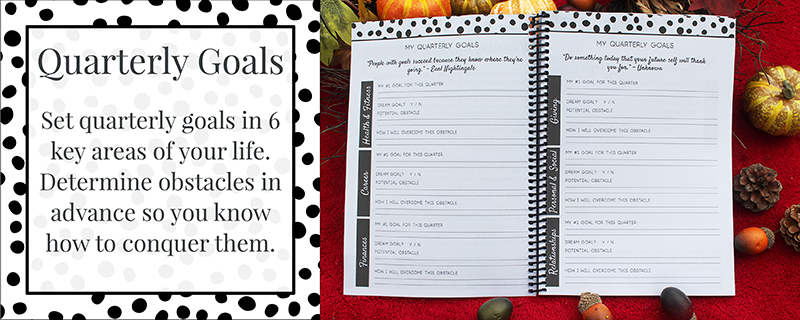 Quarterly Goals
Set quarterly goals in 6
key areas of your life.
Determine obstacles in
advance so you know
how to conquer them.
MY QUARTERLY GOALS
"People with goals succeed because they know where they're
going." - Earl Nightingale
Health & Fitness
MY #1 GOAL FOR THIS QUARTER
DREAM GOAL? Y / N
POTENTIAL OBSTACLE
HOW I WILL OVERCOME THIS OBSTACLE
Career
MY #1 GOAL FOR THIS QUARTER
DREAM GOAL? Y / N
POTENTIAL OBSTACLE
HOW I WILL OVERCOME THIS OBSTACLE
Finances
MY #1 GOAL FOR THIS QUARTER
DREAM GOAL? Y / N
POTENTIAL OBSTACLE
HOW I WILL OVERCOME THIS OBSTACLE
MY QUARTERLY GOALS
"Do something today that your future self will thank
you for." - Unknown
Giving
MY #1 GOAL FOR THIS QUARTER
DREAM GOAL? Y / N
POTENTIAL OBSTACLE
HOW I WILL OVERCOME THIS OBSTACLE
Personal & Social
MY #1 GOAL FOR THIS QUARTER
DREAM GOAL? Y / N
POTENTIAL OBSTACLE
HOW I WILL OVERCOME THIS OBSTACLE
Relationships
MY #1 GOAL FOR THIS QUARTER
DREAM GOAL? Y / N
POTENTIAL OBSTACLE
HOW I WILL OVERCOME THIS OBSTACLE